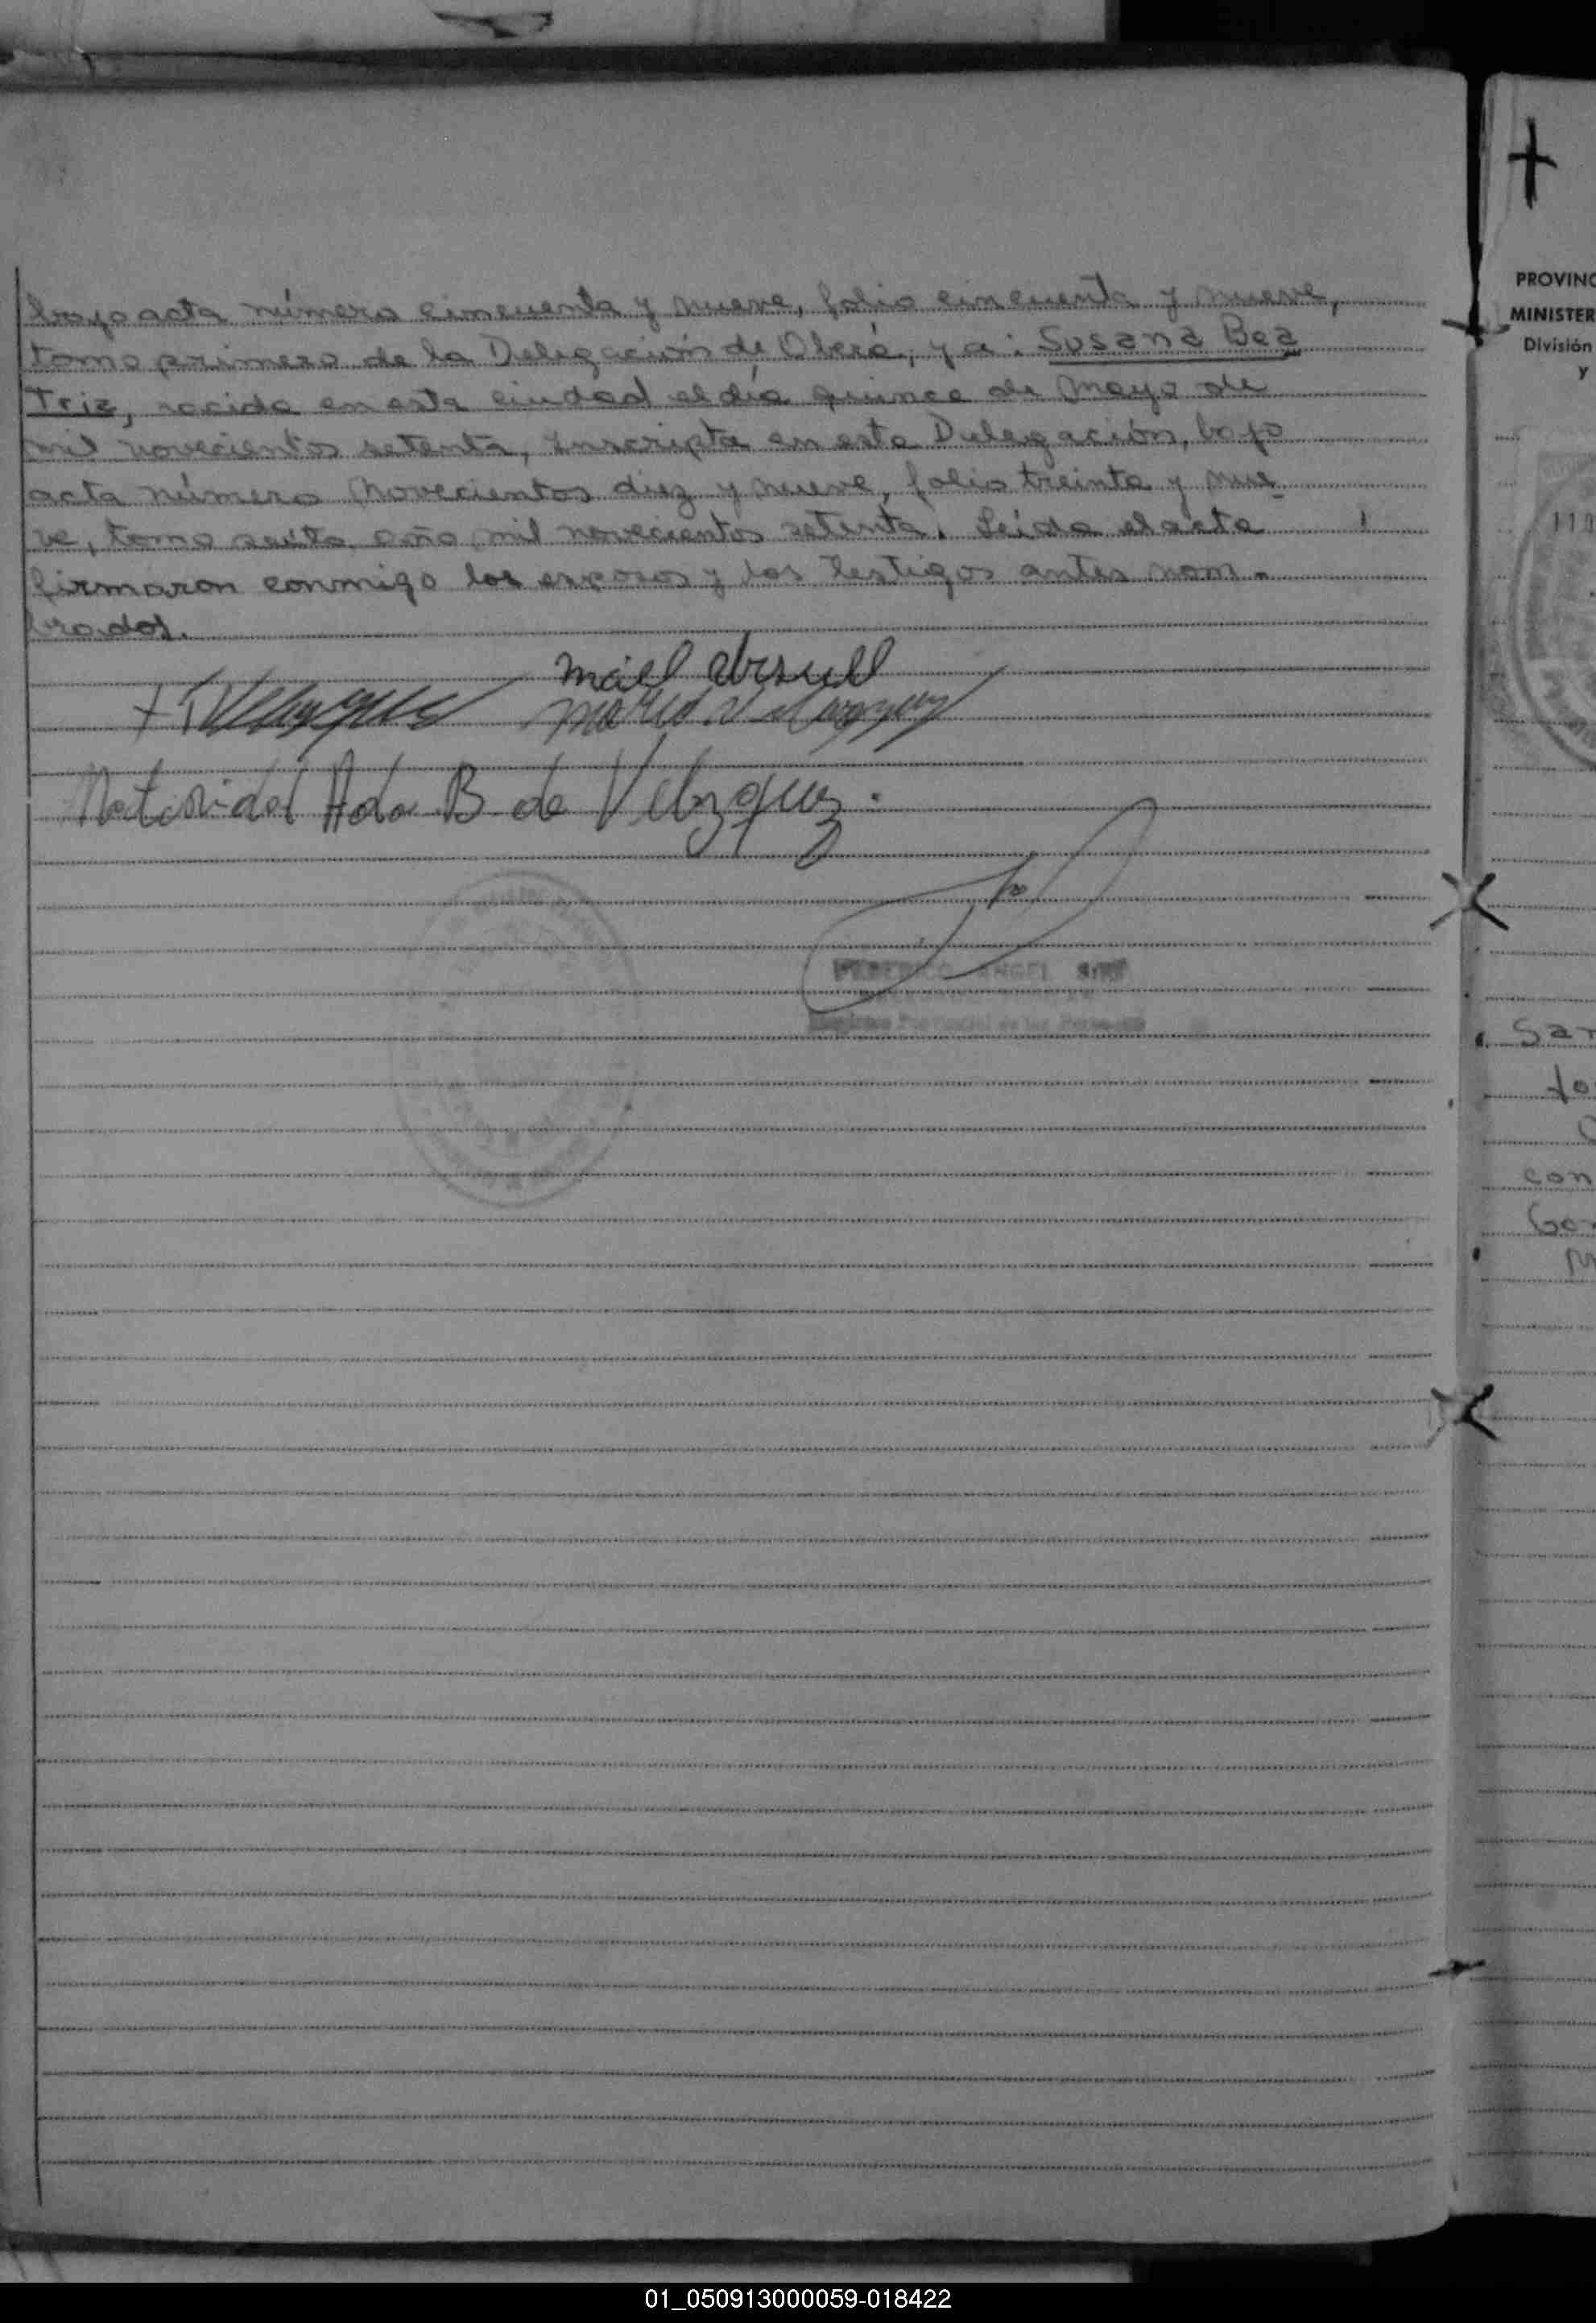 bajo acta número cincuenta y nueve, folio cincuenta y nueve,
tomo primero de la Delegación de Oberá, y a: Susana Bea
Triz, nacida en esta ciudad el día quince de Mayo de
mil novecientos setenta, inscripta en esta Delegación, bajo
acta número novecientos diez y nueve, folio treinta y nue
ve, tomo sexto, año mil novecientos setenta. Leída el acta
firmaron conmigo los esposos y los testigos antes nom-
brados.
Velazquez
Natividad Ada B de Velazquez.
FEDERICO ANGEL
Registro Provincial de las Personas
PROVINC
MINISTER
División
y
San
con
01_050913000059-018422